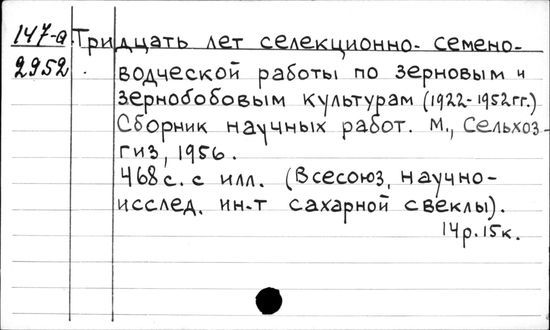 147-а Тридцать лет селекционно-семено-
2952 водческой работы по зерновым и
зернобобовым культурам (1922-1952гг.)
Сборник научных работ. М., Сельхоз-
гиз, 1956.
468с. с илл. (Всесоюз. научно-
исслед. ин-т сахарной свеклы).
14р.15к.